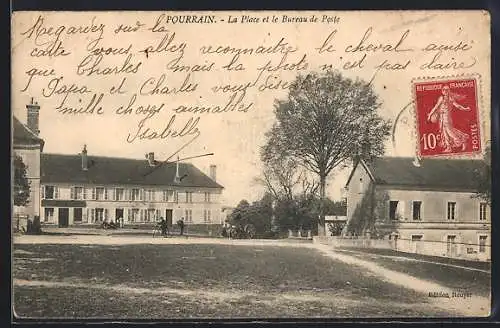 POURRAIN. - La Place et le Bureau de Poste
Regardez sur la
carte vous allez reconnaitre le cheval ainsi
que Charles mais la photo n'est pas claire
Papa et Charles vous disent
mille choses aimables
Isabelle
REPUBLIQUE FRANÇAISE
10c
POSTES
Edition Rouyer